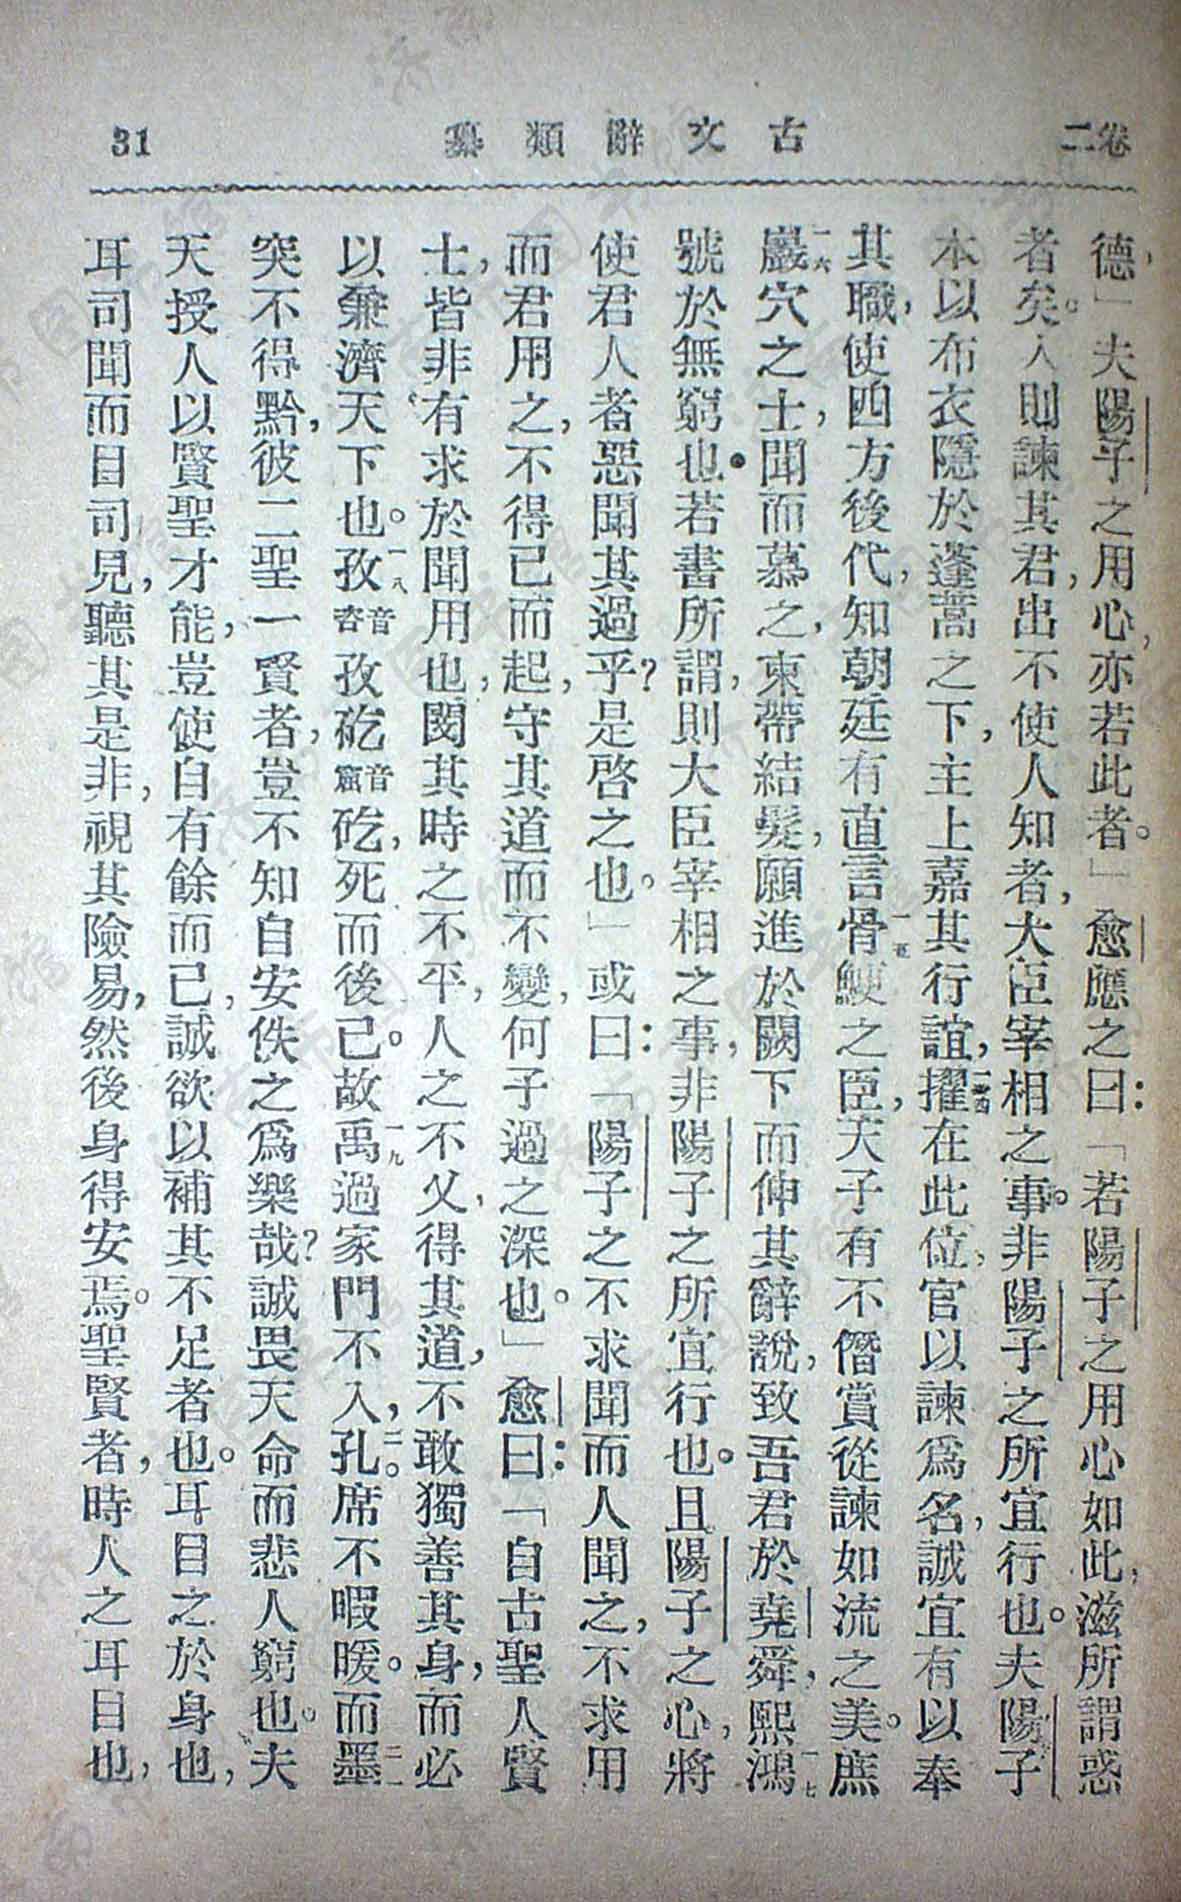 卷二
古文辭類纂
31
德」夫陽子之用心，亦若此者。」愈應之曰：「若陽子之用心如此，滋所謂惑
者矣。入則諫其君，出不使人知者，大臣宰相之事。非陽子之所宜行也。夫陽子
本以布衣隱於蓬蒿之下，主上嘉其行誼，擢一四在此位，官以諫爲名，誠宜有以奉
其職，使四方後代，知朝廷有直言骨一五鯁之臣，天子有不僭賞從諫如流之美。庶
巖一六穴之士，聞而慕之，束帶結髮，願進於闕下而伸其辭說，致吾君於堯舜，熙鴻一七
號於無窮也。若書所謂，則大臣宰相之事，非陽子之所宜行也。且陽子之心，將
使君人者惡聞其過乎？是啓之也。」或曰：「陽子之不求聞而人聞之，不求用
而君用之，不得已而起，守其道而不變，何子過之深也。」愈曰：「自古聖人賢
士，皆非有求於聞用也，閔其時之不平，人之不乂，得其道，不敢獨善其身，而必
以兼濟天下也。孜一八音咨孜矻音窟矻，死而後已。故禹一九過家門不入，孔二〇席不暇暖。而墨二一
突不得黔，彼二聖一賢者，豈不知自安佚之爲樂哉？誠畏天命而悲人窮也。夫
天授人以賢聖才能，豈使自有餘而已，誠欲以補其不足者也。耳目之於身也，
耳司聞而目司見，聽其是非，視其險易，然後身得安焉。聖賢者，時人之耳目也，